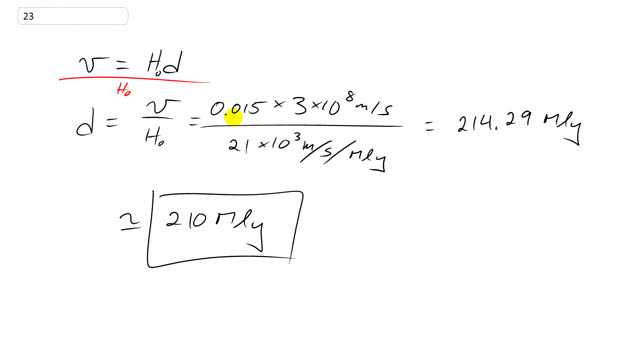 23
v = H₀d
H₀
d = v/H₀ = 0.015 × 3 × 10⁸ m/s / 21 × 10³ m/s/Mly = 214.29 Mly
≃ 210 Mly